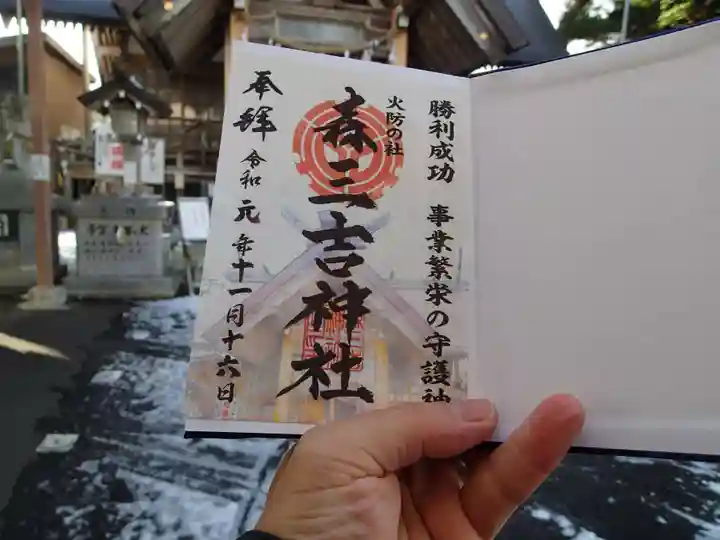 勝利成功 事業繁栄の守護神
火防の社
森三吉神社
奉拜
令和元年十一月十六日